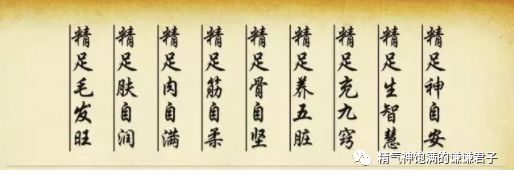 精足神自安
精足生智慧
精足充九窍
精足养五脏
精足骨自坚
精足筋自柔
精足肉自满
精足肤自润
精足毛发旺
精气神饱满的谦谦君子